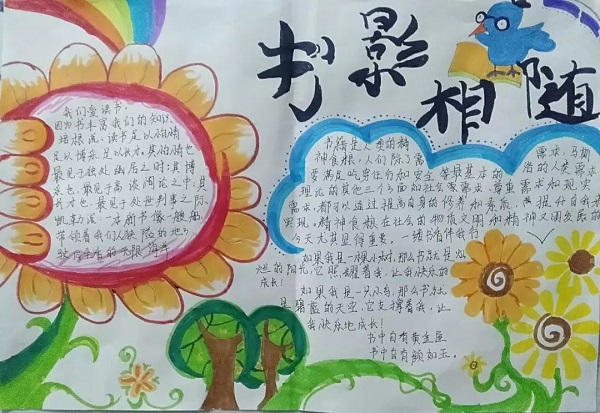 书影相随
我们爱读书，
因为书丰富我们的知识
培根说：读书足以怡情
足以博采，足以长才。其怡情也
最见于独处幽居之时；其博
采也，最见于高谈阔论之中；其
长才也，最见于处世判事之际。
凯勒说：一本新书像一艘船
带领着我们从狭隘的地方
驶向生活的无限海洋
书籍是人类的精
神食粮。人们除了需
要满足吃穿住行和安全等最基本的
理论的其他三个方面如社会家需求、尊重
需求，都可以通过提高自身的修养和素质
实现。精神食粮在社会的物质文明和精神文明
今天尤其显得重要。一缕书香伴我行
需求，马斯
洛的人类需求
需求和现实
提升自我来
如果我是一棵小树，那么书就是灿
烂的阳光，它照耀着我，让我快乐的
成长！
如果我是一只小鸟，那么书就
是碧蓝的天空，它支撑着我，让
我快乐地成长！
书中自有黄金屋
书中自有颜如玉。